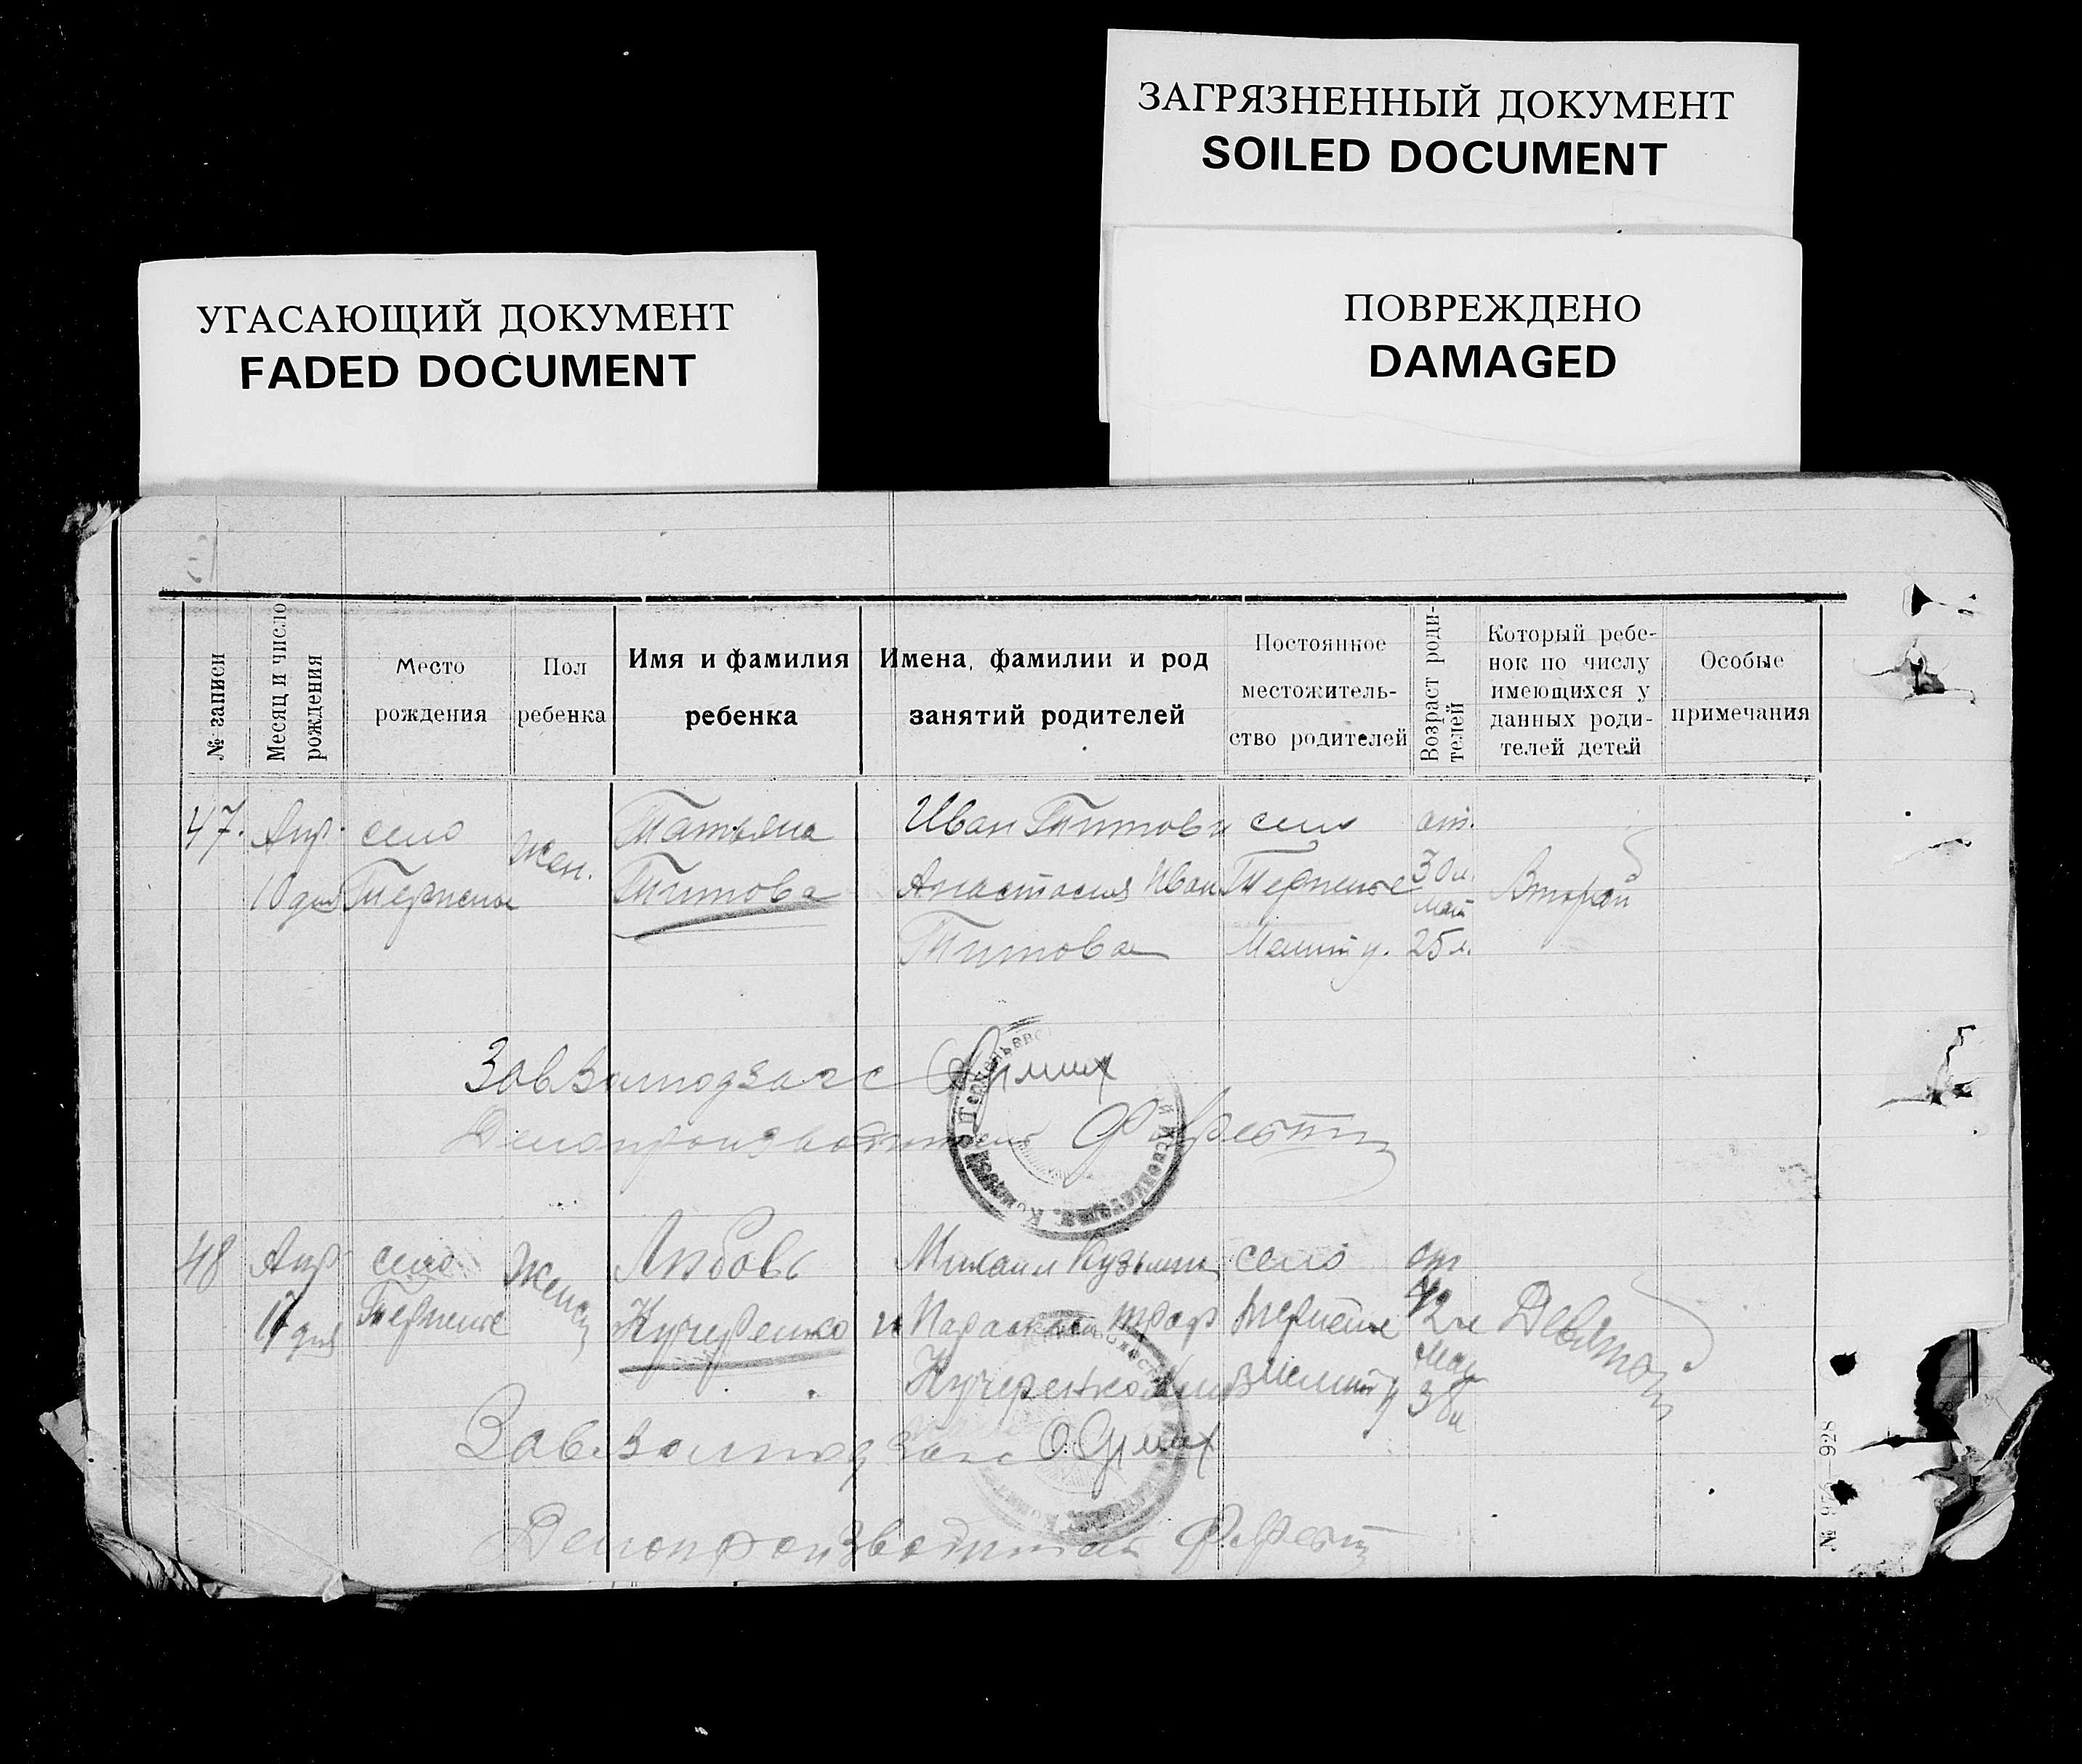 ЗАГРЯЗНЕННЫЙ ДОКУМЕНТ
SOILED DOCUMENT
УГАСАЮЩИЙ ДОКУМЕНТ
FADED DOCUMENT
ПОВРЕЖДЕНО
DAMAGED
№ записи
Месяц и число
рождения
Место
рождения
Пол
ребенка
Имя и фамилия
ребенка
Имена, фамилии и род
занятий родителей
Постоянное
местожитель-
ство родителей
Возраст роди-
телей
Который ребе-
нок по числу
имеющихся у
данных роди-
телей детей
Особые
примечания
47.
Апр.
10 дня
село
Терпенье
жен.
Татьяна
Титова
Иван Титов
Анастасия Иван
Титова
село
Терпенье
Мелит у.
от.
30 л.
мат
25 л.
Второй
ЗавВолподзагс
Делопроизводитель
48
Апр
дня
село
Терпенье
женск
Любовь
Кучеренко
Михаил Кузьмич
и Параскева Троф
Кучеренко
село
Терпенье
Мелит у
от
42 л
мат
38 л
Девятой
Зав. Волподзагс
Делопроизводитель